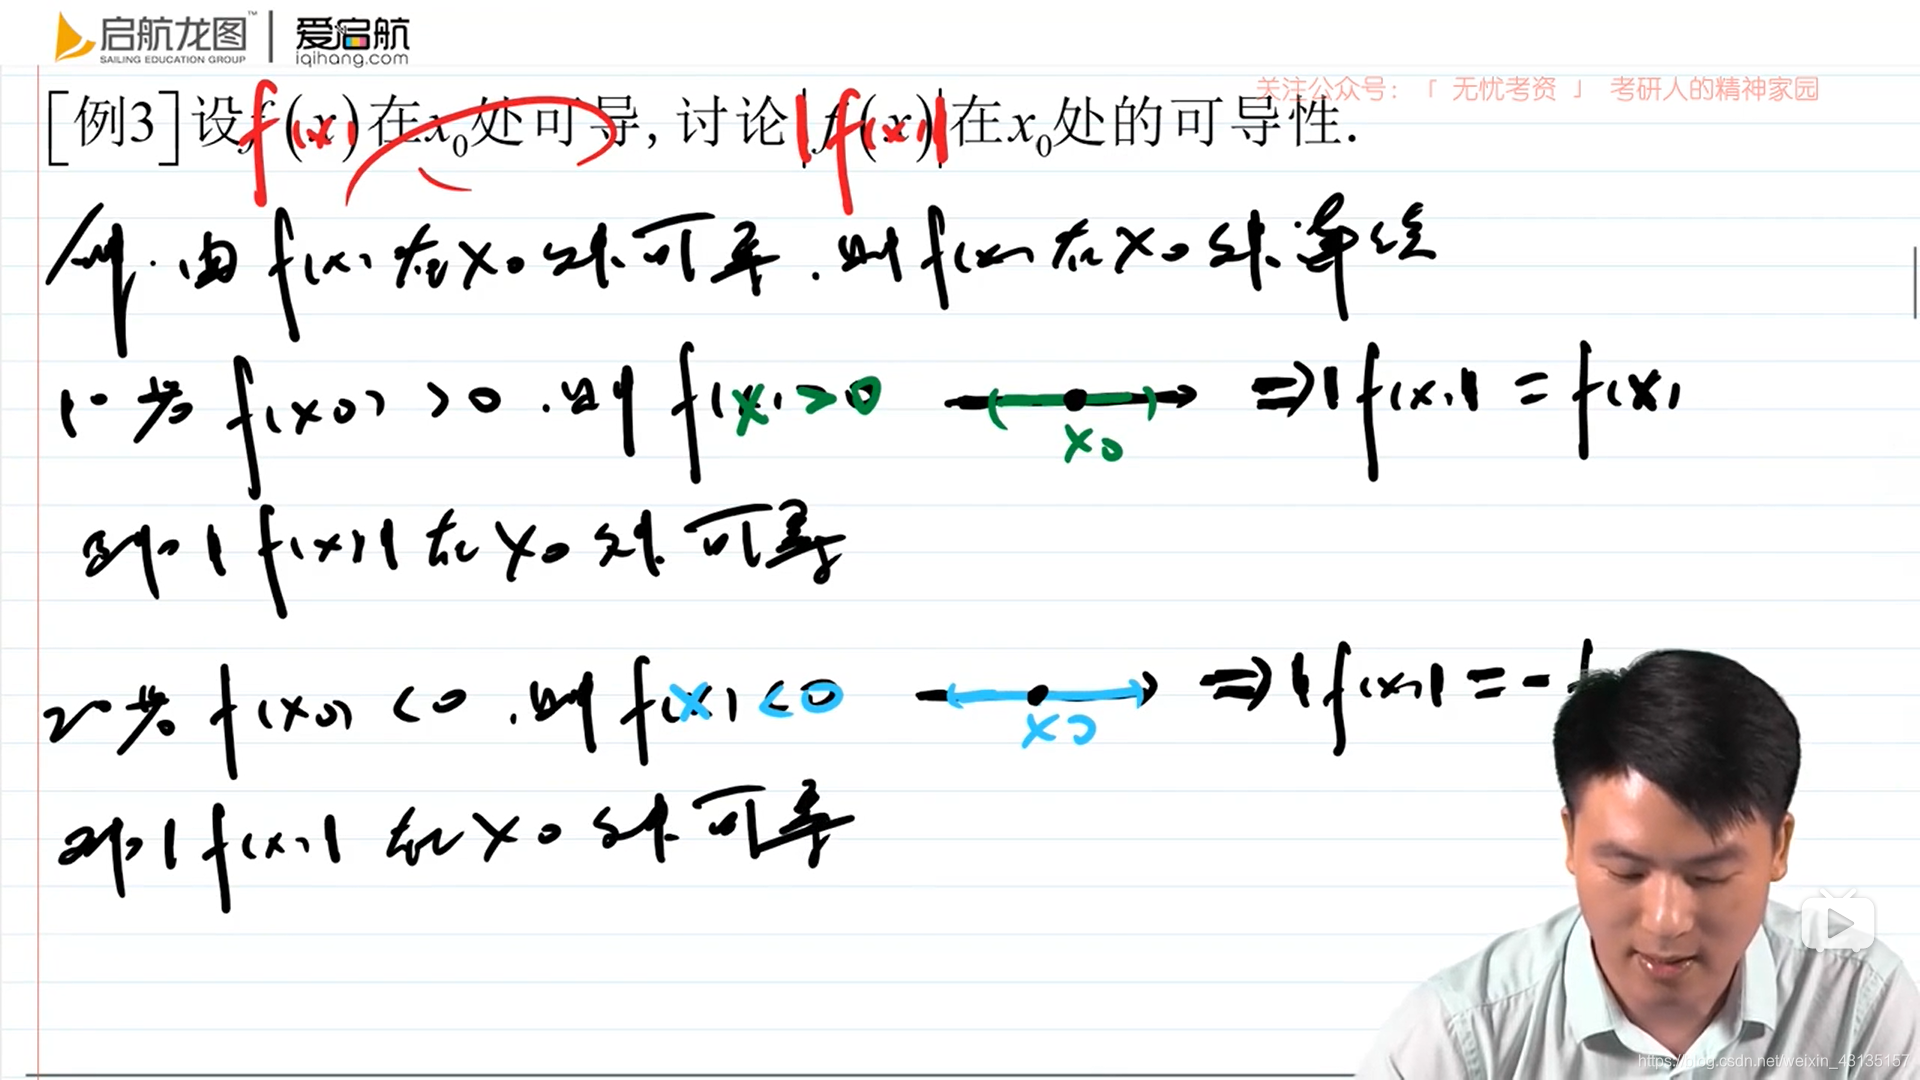 启航龙图™ | 爱启航
SAILING EDUCATION GROUP iqihang.com
关注公众号：「 无忧考资 」 考研人的精神家园
[例3]设f(x)在x₀处可导,讨论|f(x)|在x₀处的可导性.
f(x) |f(x)|
解.由f(x)在x₀处可导.则f(x)在x₀处连续
1° 若f(x₀)>0.则f(x)>0 x₀ ⇒|f(x)|=f(x)
即|f(x)|在x₀处可导
2° 若f(x₀)<0.则f(x)<0 x₀ ⇒|f(x)|=-f
即|f(x)|在x₀处可导
https://blog.csdn.net/weixin_43135157